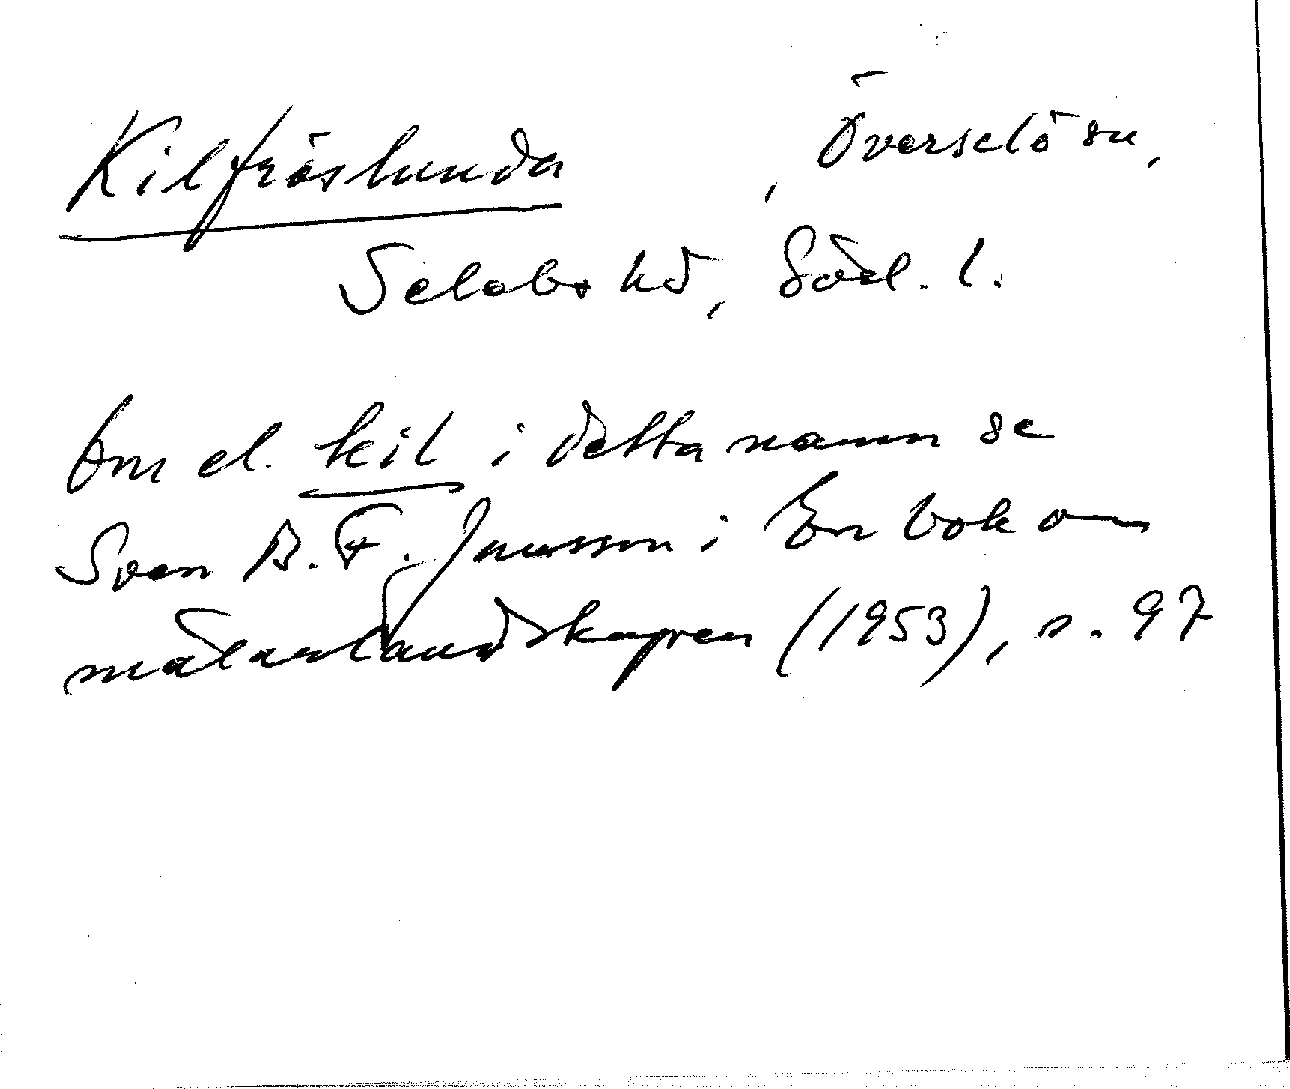 Kilfröslunda, Överselö sn,
Selebo hd, Södl. l.
Om el. kil i detta namn se
Sven B. F. Jansson i En bok om
mälarlandskapen (1953), s. 97